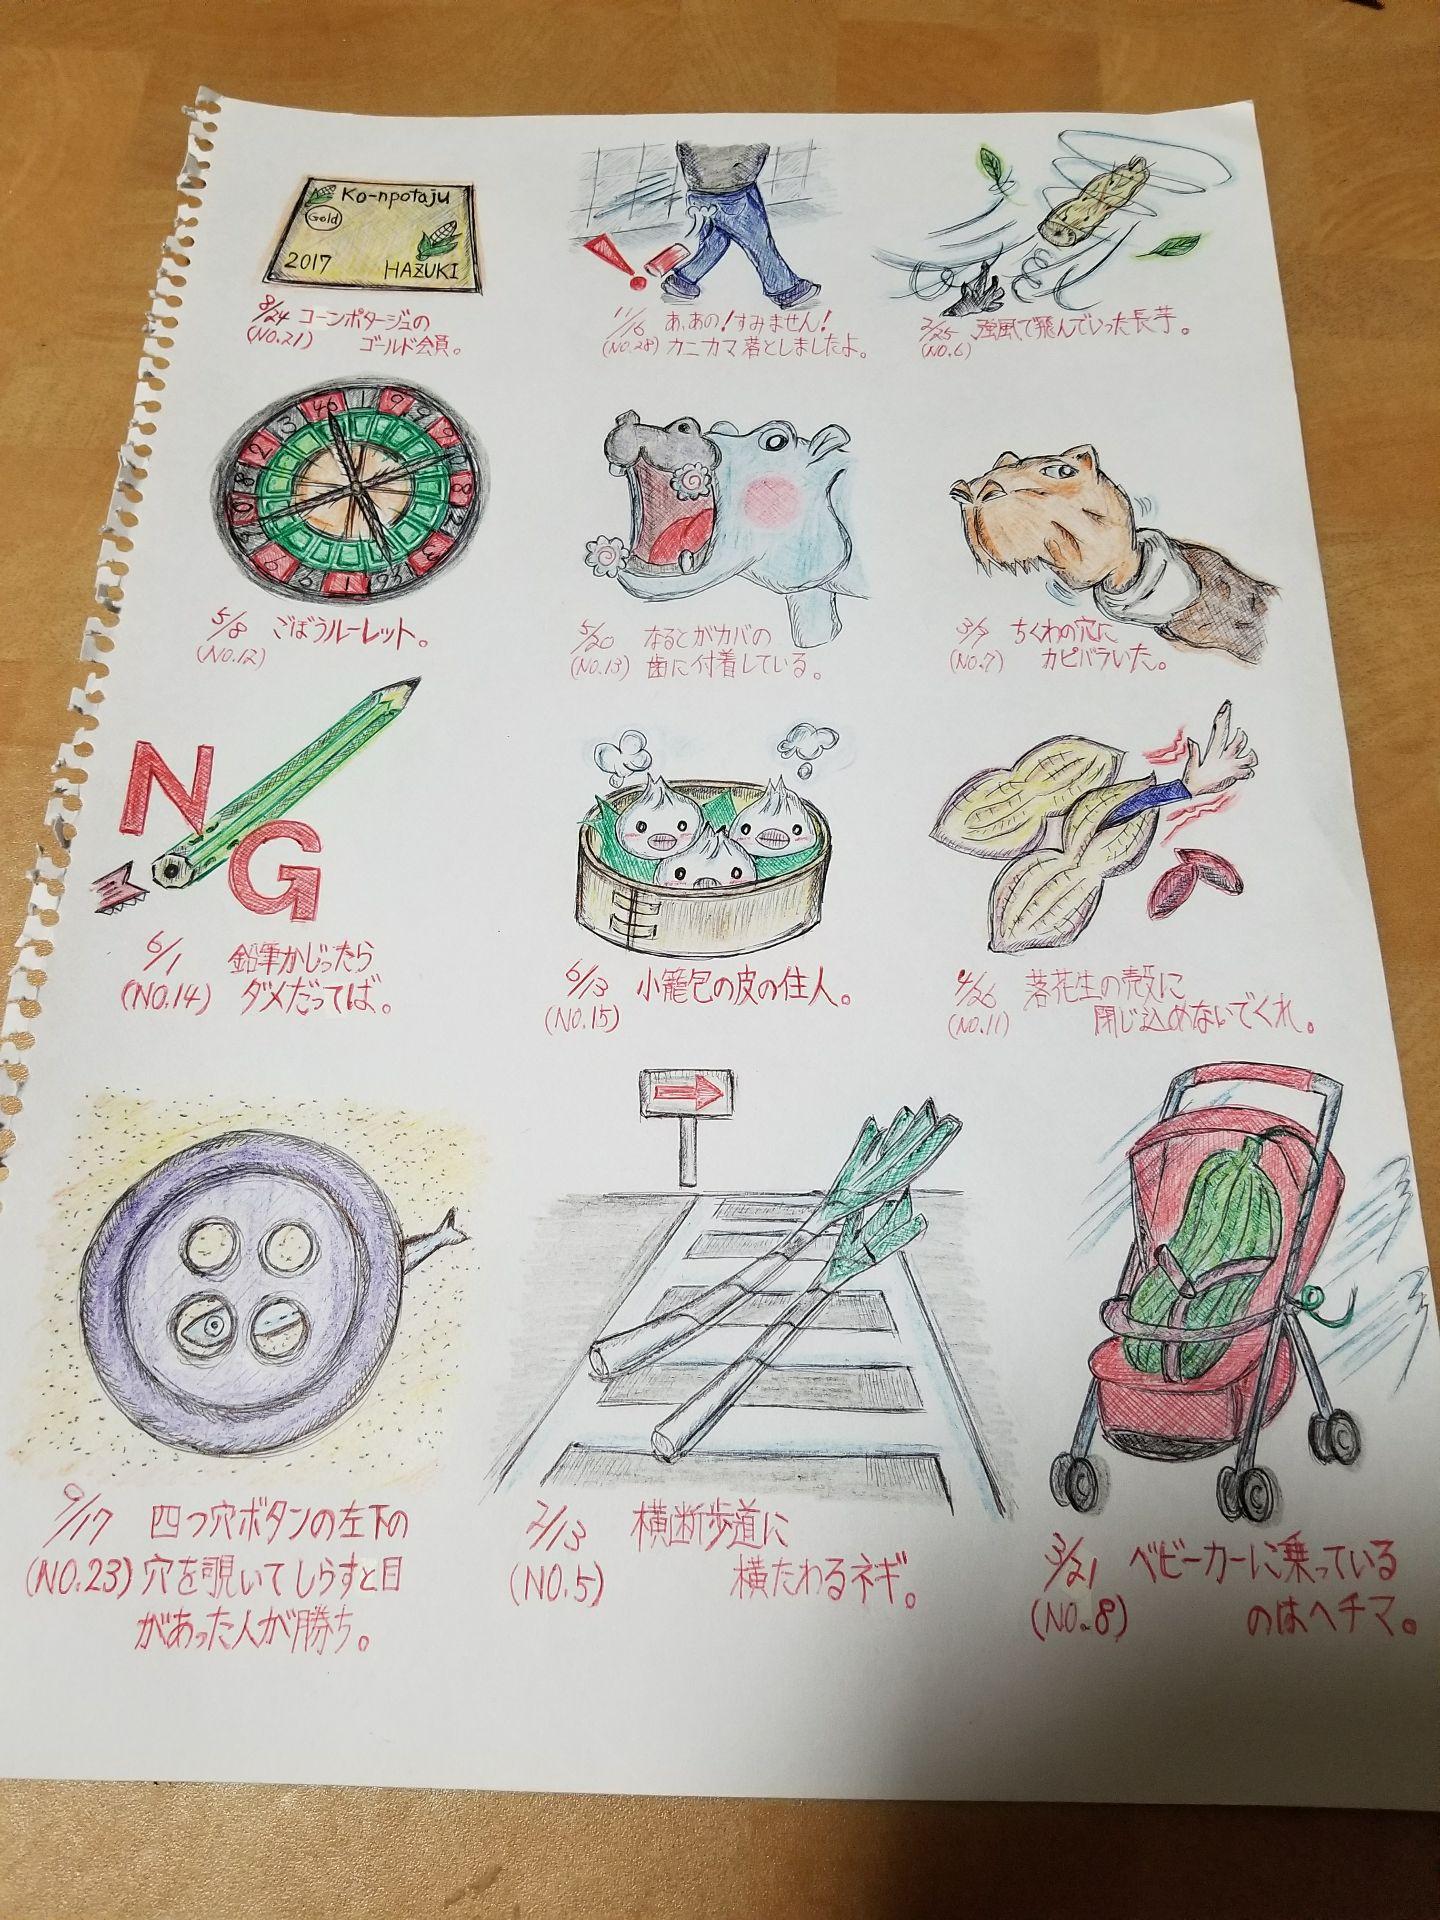 Ko-npotaju
Gold
2017 HAZUKI
8/24 コーンポタージュの
(NO.21) ゴールド会員。
11/6 あ、あの!すみません!
(NO.28) カニカマ落としましたよ。
2/25 強風で飛んでいった長芋。
(NO.6)
5/8 ごぼうルーレット。
(NO.12)
5/20 なるとがカバの
(NO.13) 歯に付着している。
3/7 ちくわの穴に
(NO.7) カピバラいた。
NG
6/1 鉛筆かじったら
(NO.14) ダメだってば。
6/13 小籠包の皮の住人。
(NO.15)
4/26 落花生の殻に
(NO.11) 閉じ込めないでくれ。
9/17 四つ穴ボタンの左下の
(NO.23) 穴を覗いてしらすと目
があった人が勝ち。
2/13 横断歩道に
(NO.5) 横たわるネギ。
3/21 ベビーカーに乗っている
(NO.8) のはヘチマ。